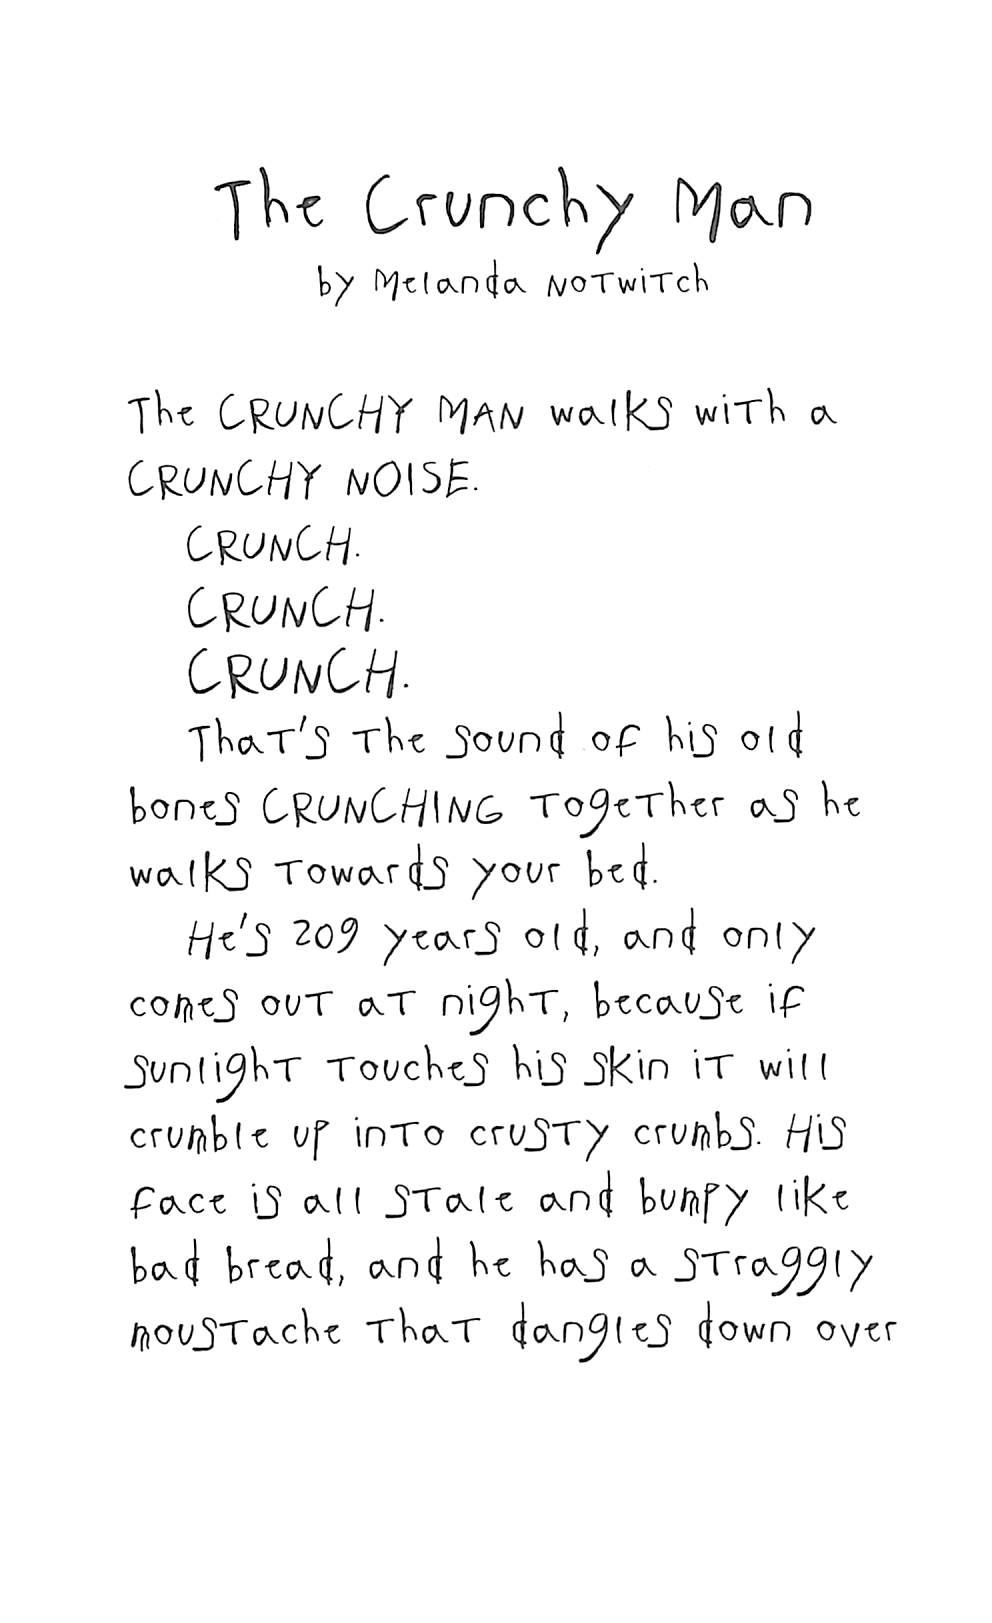 The Crunchy Man
by Melanda Notwitch
The CRUNCHY MAN walks with a
CRUNCHY NOISE.
CRUNCH.
CRUNCH.
CRUNCH.
That's the sound of his old
bones CRUNCHING together as he
walks towards your bed.
He's 209 years old, and only
comes out at night, because if
sunlight touches his skin it will
crumble up into crusty crumbs. His
face is all stale and bumpy like
bad bread, and he has a straggly
moustache that dangles down over